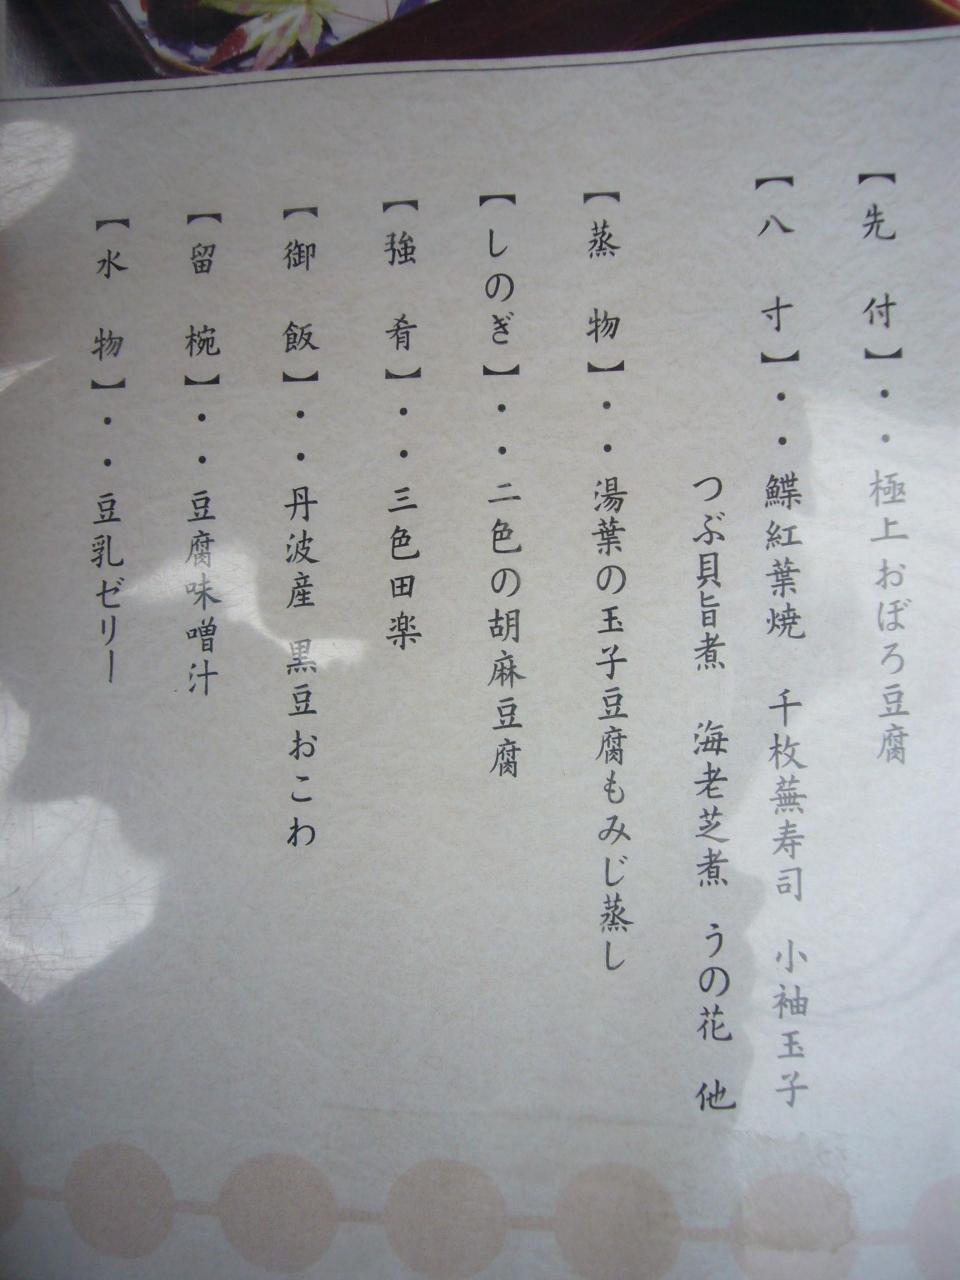 【先付】・・極上おぼろ豆腐
【八寸】・・鰈紅葉焼 千枚蕪寿司 小袖玉子
つぶ貝旨煮 海老芝煮 うの花 他
【蒸物】・・湯葉の玉子豆腐もみじ蒸し
【しのぎ】・・二色の胡麻豆腐
【強肴】・・三色田楽
【御飯】・・丹波産 黒豆おこわ
【留椀】・・豆腐味噌汁
【水物】・・豆乳ゼリー